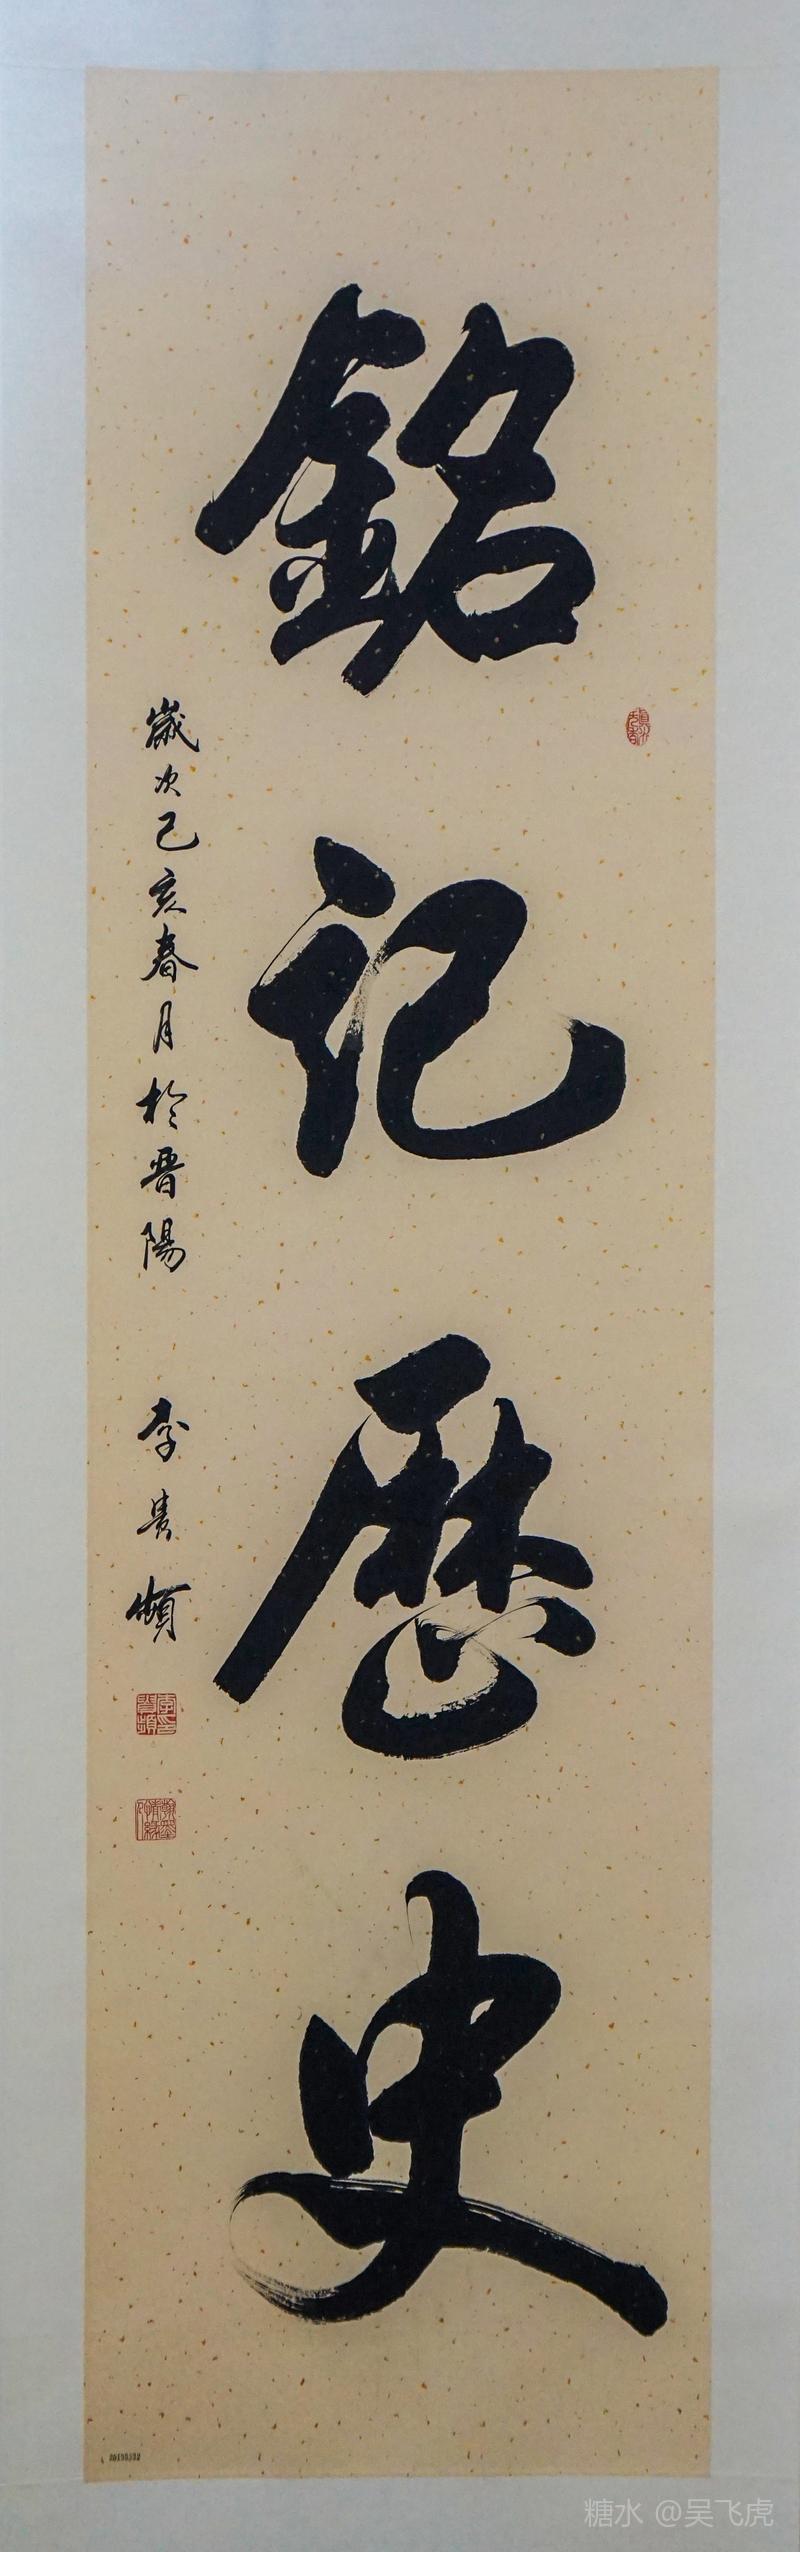 銘记歷史
歲次己亥春月於晋陽 李貴頫
20190332
糖水 @吴飞虎